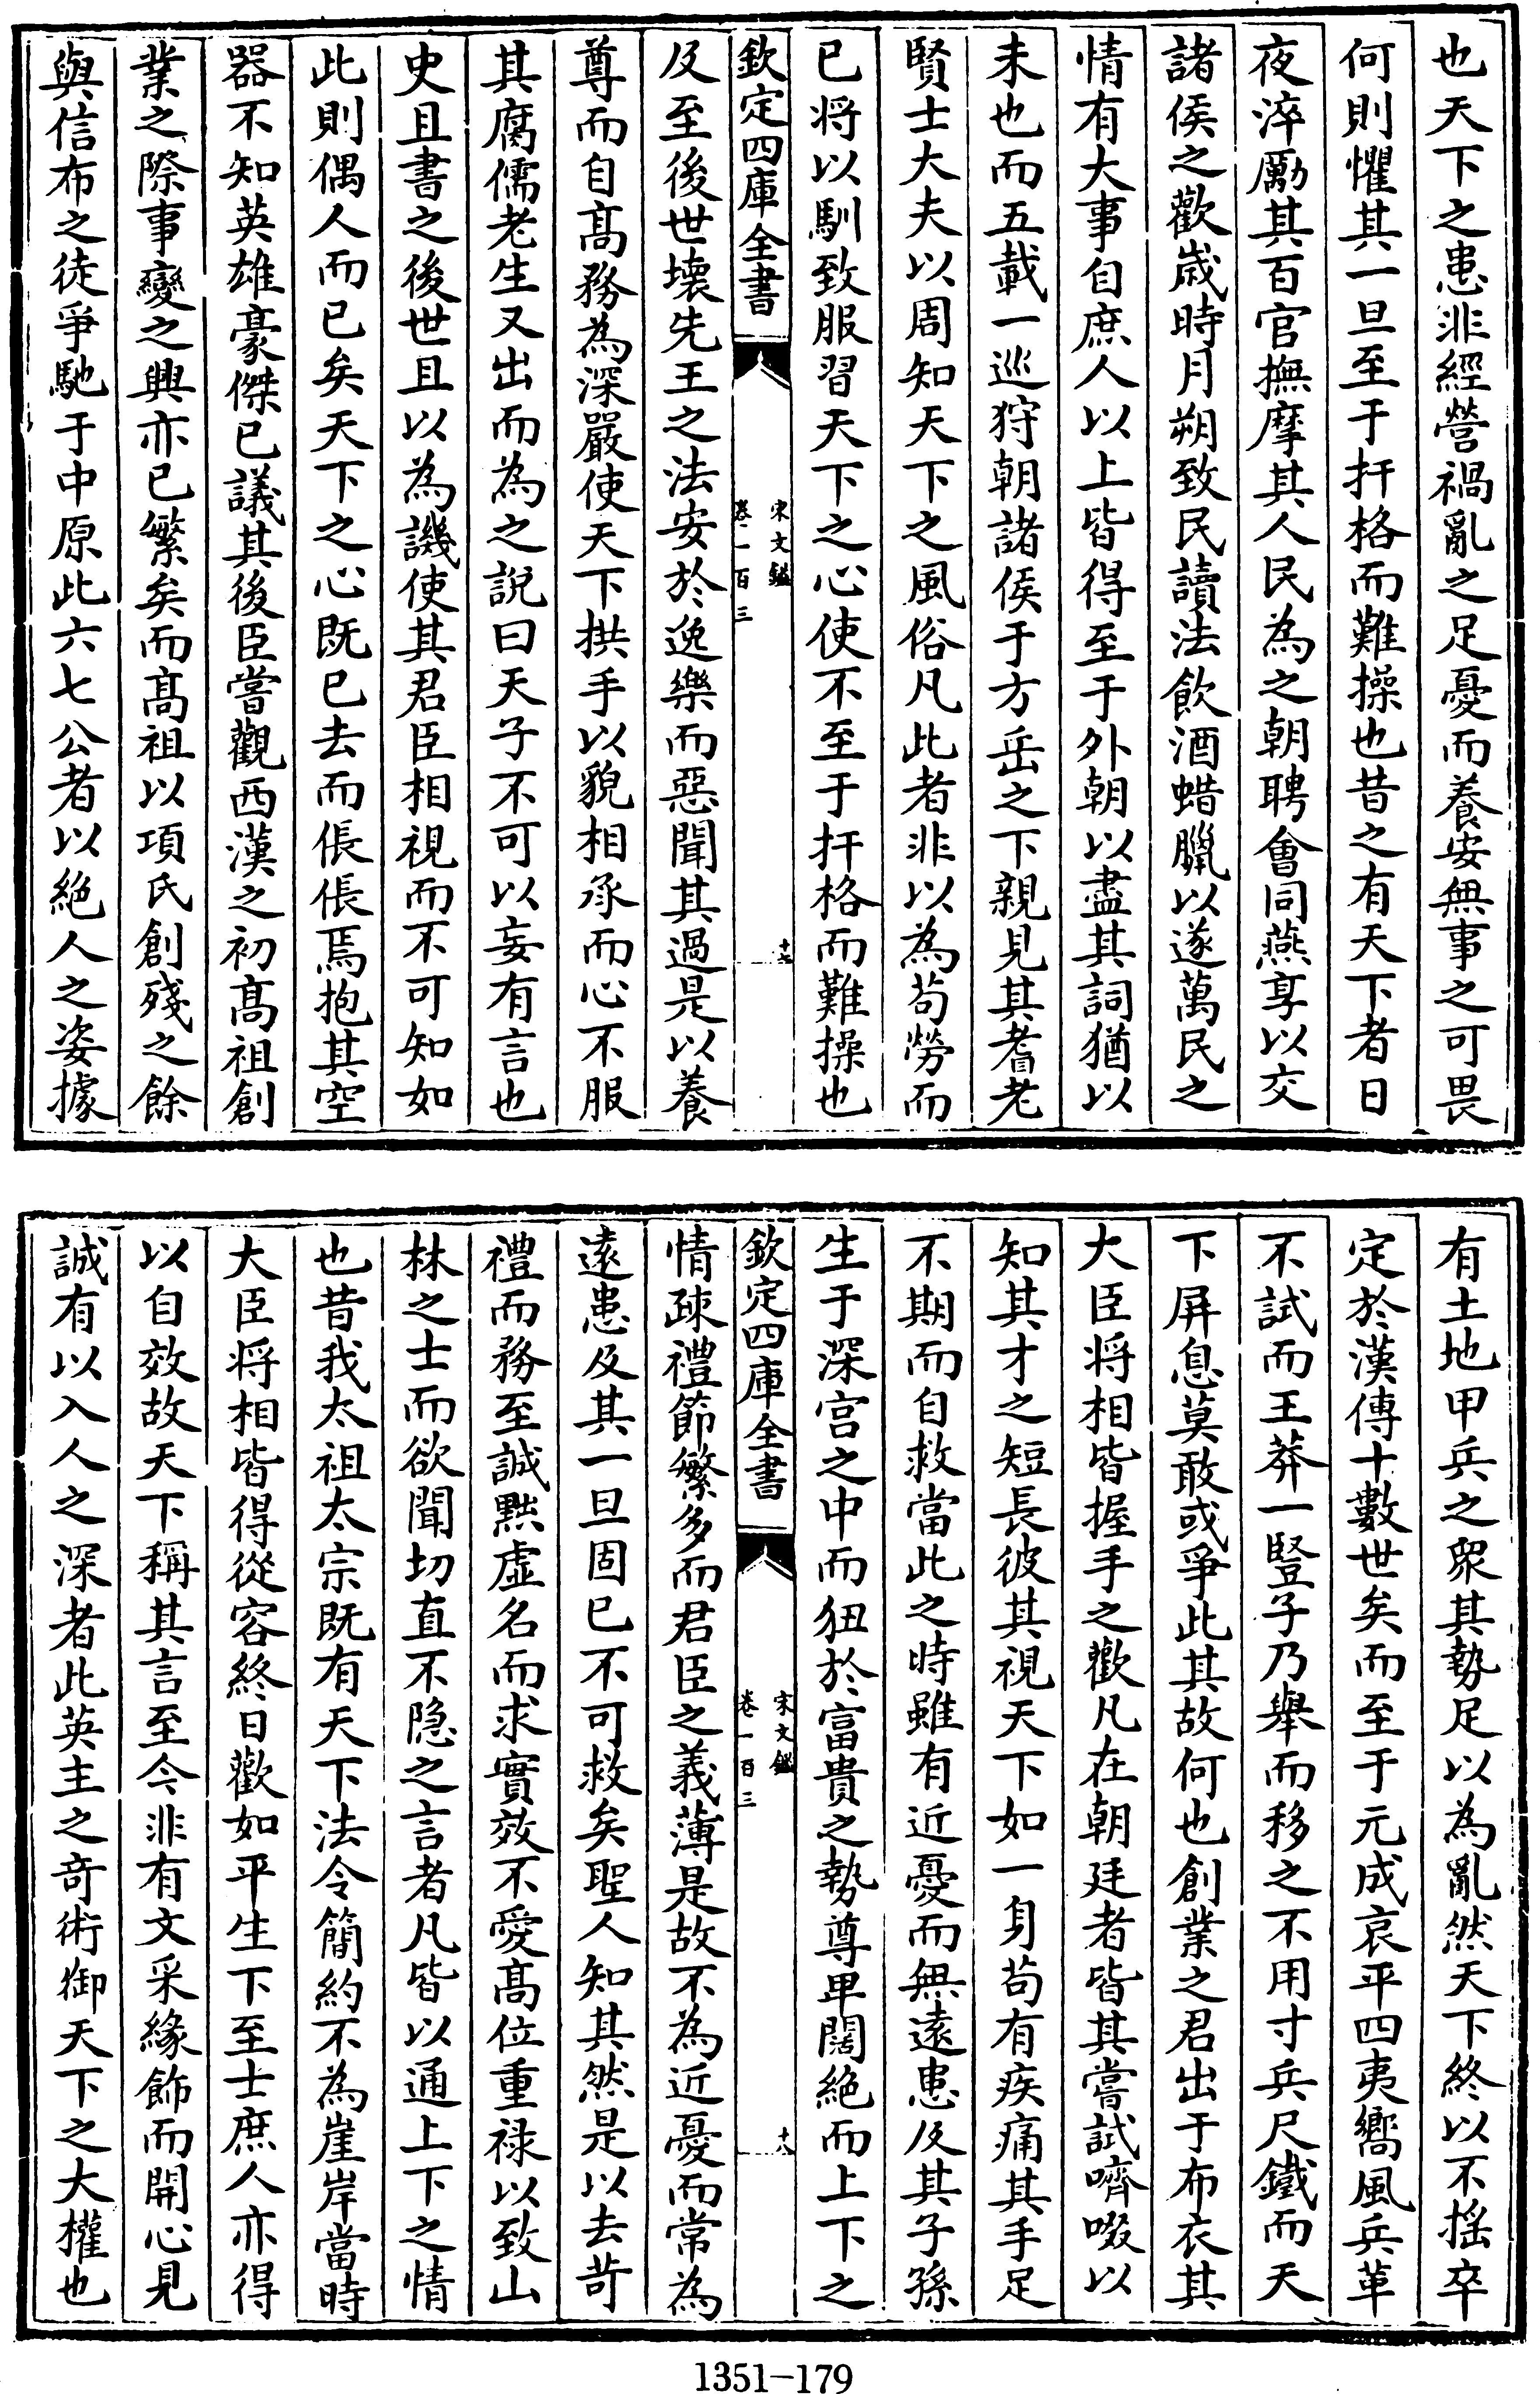 也天下之患非經營禍亂之足憂而養安無事之可畏
何則懼其一旦至于扞格而難操也昔之有天下者日
夜淬勵其百官撫摩其人民為之朝聘會同燕享以交
諸侯之歡嵗時月朔致民讀法飲酒蜡臘以遂萬民之
情有大事自庶人以上皆得至于外朝以盡其詞猶以
未也而五載一巡狩朝諸侯于方岳之下親見其耆老
賢士大夫以周知天下之風俗凡此者非以為苟勞而
已将以馴致服習天下之心使不至于扞格而難操也
欽定四庫全書
宋文鑑
卷一百三
十七
及至後世壞先王之法安於逸樂而惡聞其過是以養
尊而自髙務為深嚴使天下拱手以貌相承而心不服
其腐儒老生又出而為之說曰天子不可以妄有言也
史且書之後世且以為譏使其君臣相視而不可知如
此則偶人而已矣天下之心既已去而倀倀焉抱其空
器不知英雄豪傑已議其後臣嘗觀西漢之初髙祖創
業之際事變之興亦已繁矣而髙祖以項氏創殘之餘
與信布之徒爭馳于中原此六七公者以絶人之姿據
有土地甲兵之衆其勢足以為亂然天下終以不揺卒
定於漢傳十數世矣而至于元成哀平四夷嚮風兵革
不試而王莽一豎子乃舉而移之不用寸兵尺鐵而天
下屏息莫敢或爭此其故何也創業之君出于布衣其
大臣将相皆握手之歡凡在朝廷者皆其嘗試嚌啜以
知其才之短長彼其視天下如一身苟有疾痛其手足
不期而自救當此之時雖有近憂而無遠患及其子孫
生于深宫之中而狃於富貴之勢尊卑闊絶而上下之
欽定四庫全書
宋文鑑
卷一百三
十八
情疎禮節繁多而君臣之義薄是故不為近憂而常為
逺患及其一旦固已不可救矣聖人知其然是以去苛
禮而務至誠黜虚名而求實效不愛髙位重禄以致山
林之士而欲聞切直不隠之言者凡皆以通上下之情
也昔我太祖太宗既有天下法令簡約不為崖岸當時
大臣将相皆得從容終日歡如平生下至士庶人亦得
以自效故天下稱其言至今非有文采緣飾而開心見
誠有以入人之深者此英主之竒術御天下之大權也
1351—179